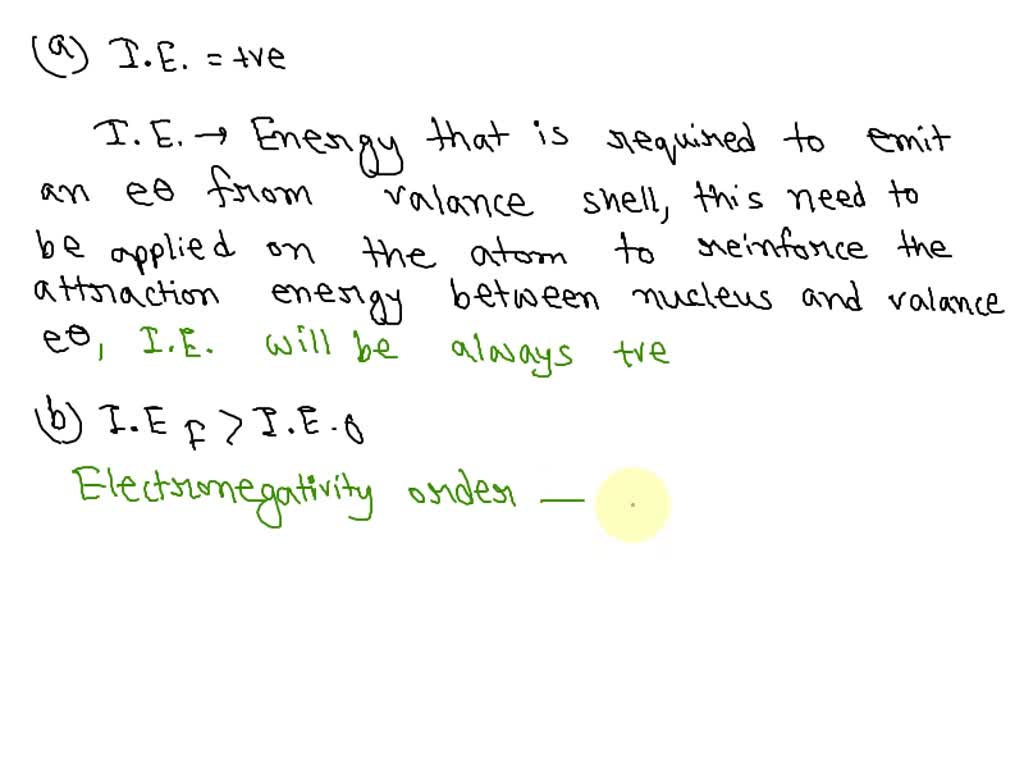 (a) I.E. = +ve
I.E. → Energy that is required to emit
an e⊖ from valance shell, this need to
be applied on the atom to reinforce the
attraction energy between nucleus and valance
e⊖, I.E. will be always +ve
(b) I.E F > I.E.O
Electronegativity order —